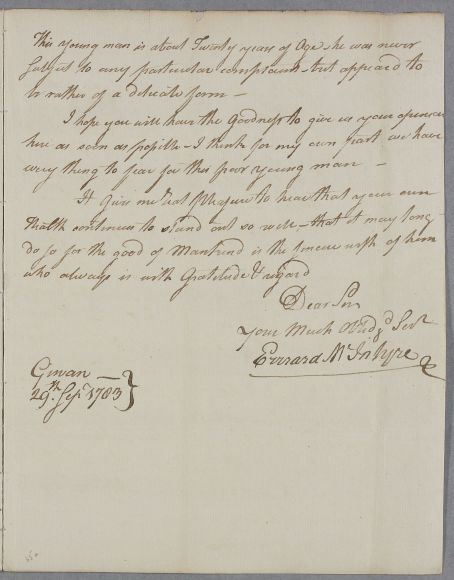 This young man is about Twenty years of Age he was never
subject to any particular complaint but appeard to
be rather of a delicate form —
I hope you will have the Goodness to give us your opinion
here as soon as possible — I think for my own part we have
every thing to fear for this poor young man —
It Gives me Great pleasure to hear that your own
Health continues to stand out so well — that it may long
do so for the good of Mankind is the sincere wish of him
who always is with Gratitude & regard
Dear Sir
Your Much Oblidgd Servt
Everard McIntyre
Girvan —
29th Sepr 1783 }